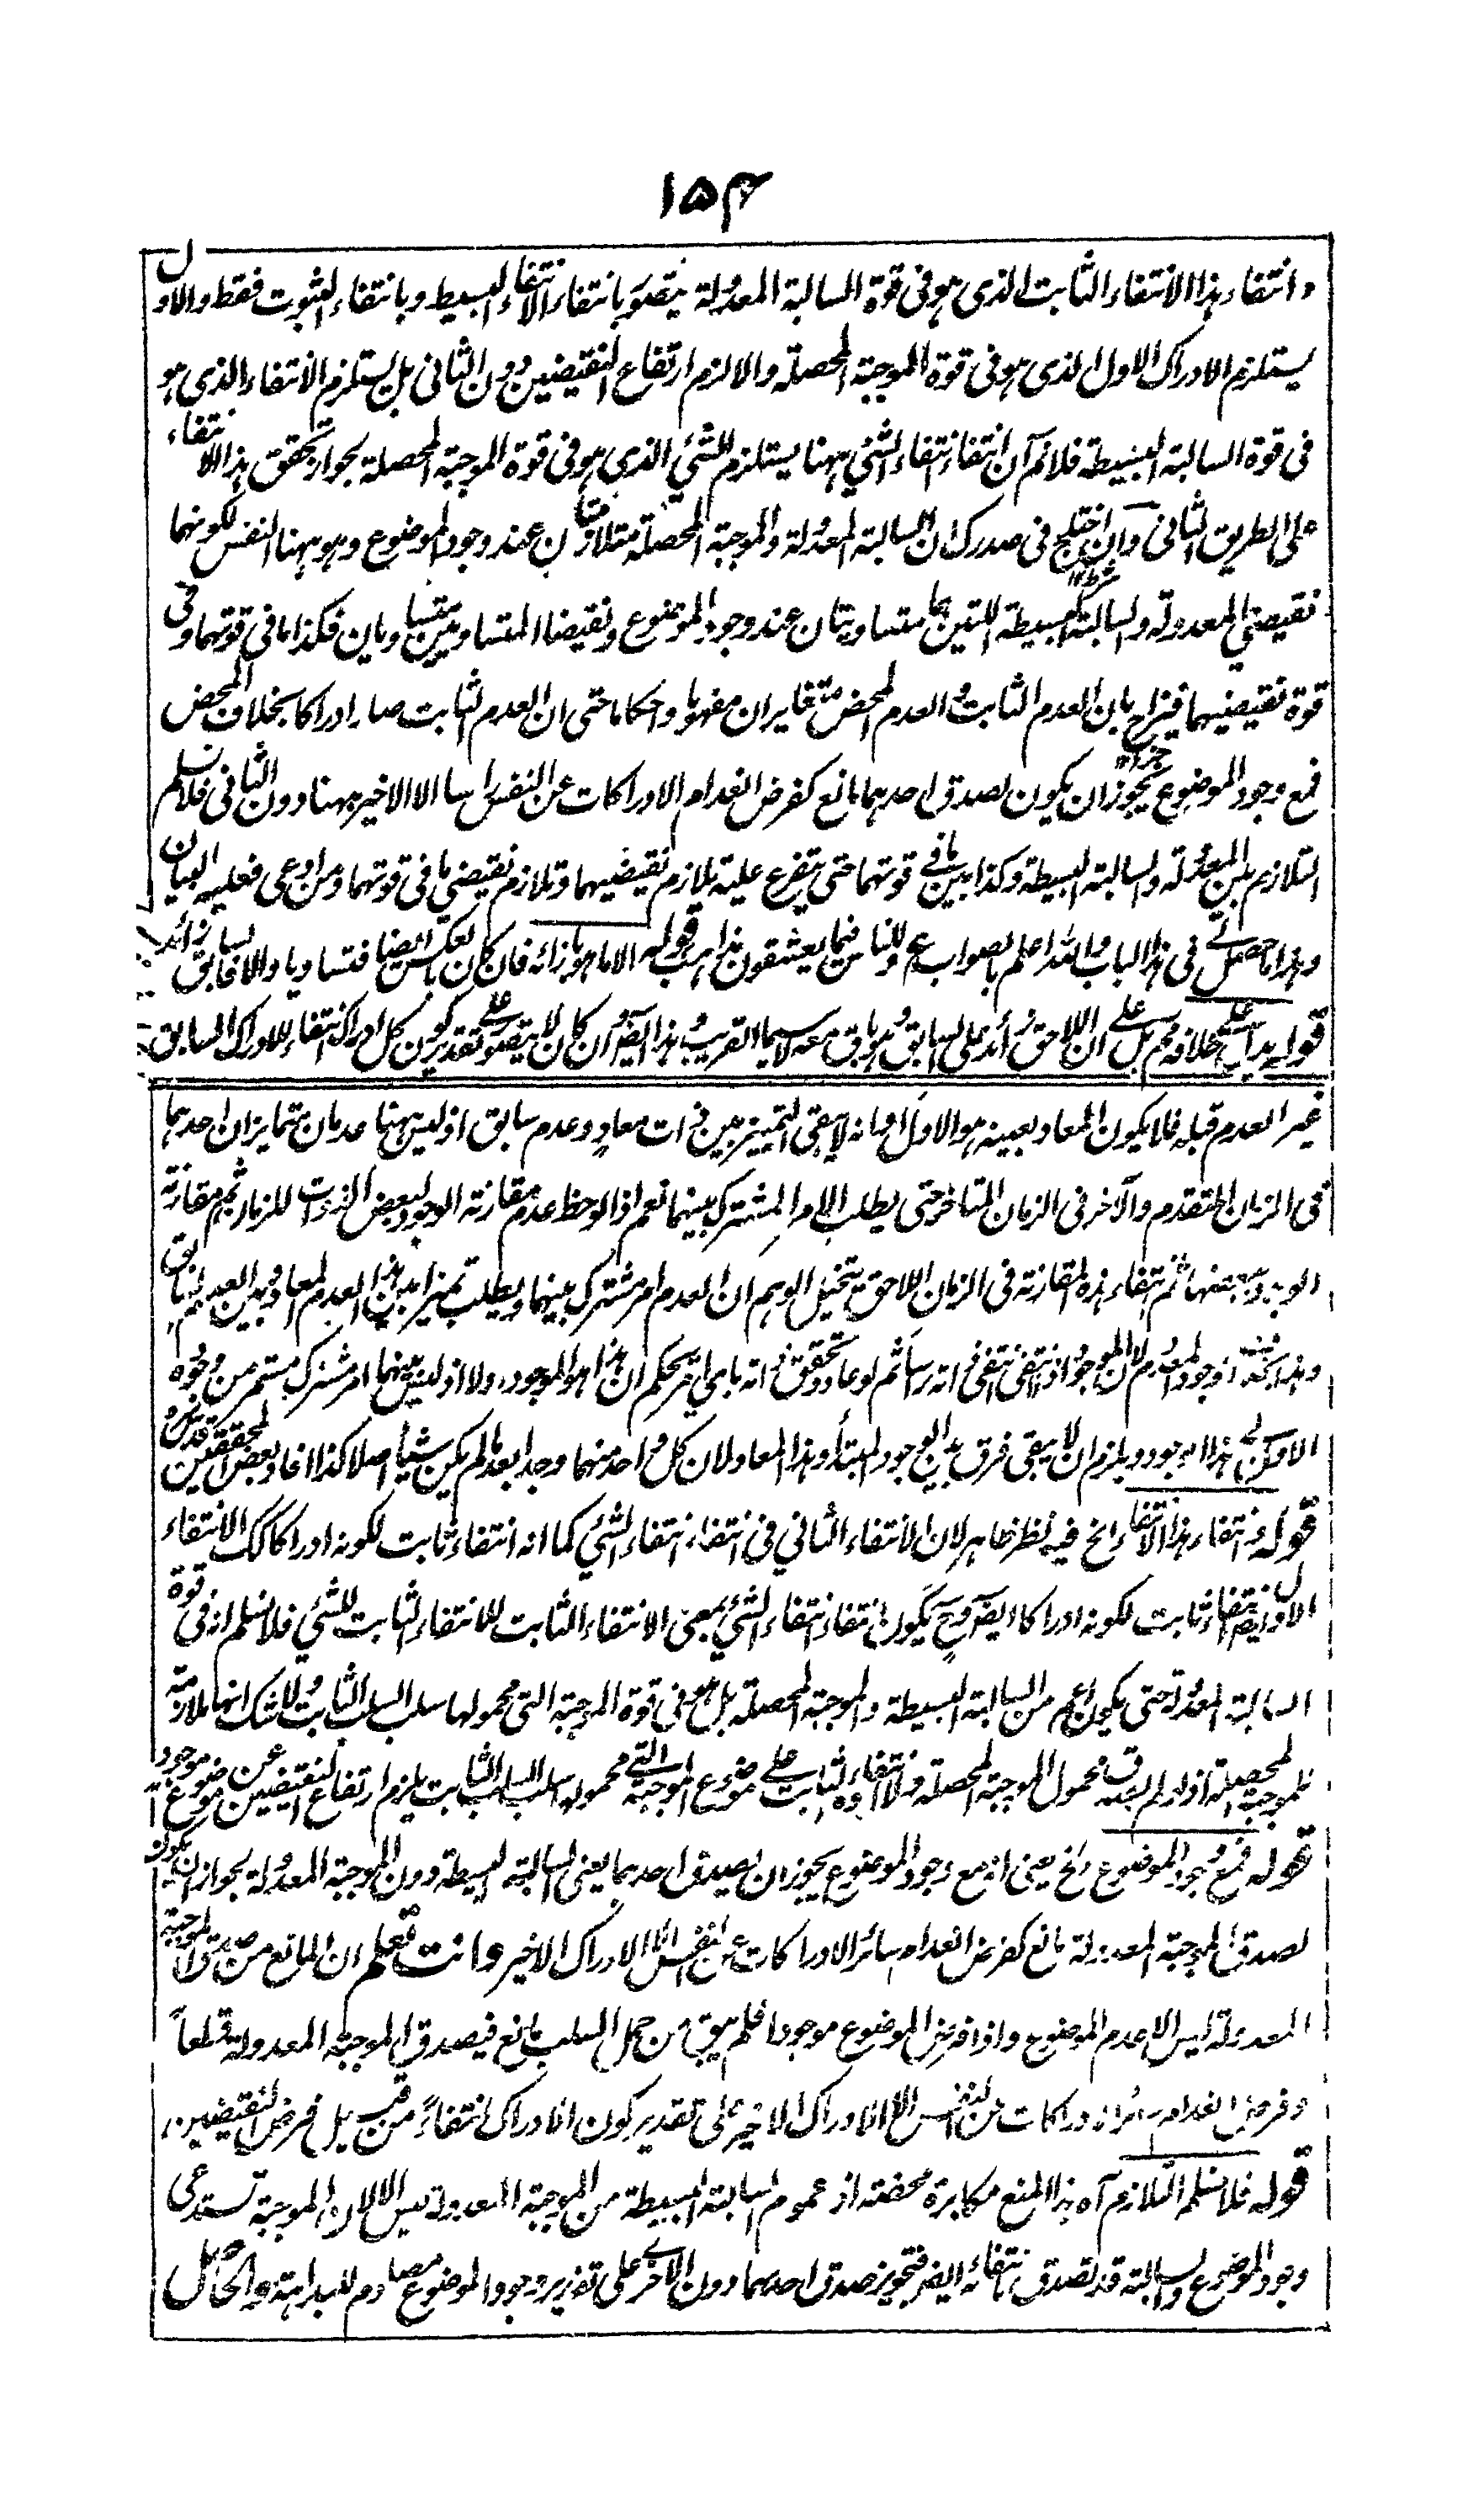 ۱۵۴
وانتفاء هذا الانتفاء الثابت الذى هو فى قوة السالبة المعدولة يتصور بانتفاء الانتفاء البسيط وبانتفاء الثبوت فقط والاول
يستلزم الادراك الاول الذى هو فى قوة الموجبة المحصلة والا لزم ارتفاع النقيضين دون الثانى بل يستلزم الانتفاء الذى هو
فى قوة السالبة البسيطة فلا نم آن انتفاء انتفاء الشئ ههنا يستلزم الشئ الذى هو فى قوة الموجبة المحصلة بجواز تحقق هذا الانتفاء
على الطريق الثانى وان اختلج فى صدرك ان السالبة المعدولة والموجبة المحصلة متلازمتان عند وجود الموضوع وهو ههنا النفس لكونهما
نقيضي المعدولة والسالبة البسيطة اللتين هما متساويتان عند وجود الموضوع ونقيضا المتساويين متساويان فكذا ما فى قوتهما وفى
قوة نقيضيهما فيزاح بان العدم الثابت والعدم المحض متغايران مفهوما واحكاما حتى ان العدم الثابت صار ادراكا بخلاف المحض
فمع وجود الموضوع يجوز ان يكون لصدق احدهما مانع كفرض انعدام الادراكات عن النفس راسا الا الاخير ههنا دون الثانى فلا نسلم
التلازم بين المعدولة والسالبة البسيطة وكذا بين ما فى قوتهما حتى يتفرع عليه تلازم نقيضيهما وتلازم نقيضي ما فى قوتهما ومن ادعى فعليه البيان
وهذا ما حصل لى فى هذا الباب والله اعلم بالصواب ع وللناس فيما يعشقون مذاهب قوله الا ما هو بازائه فان كان بعكس ايضا فتساويا والا فالسابق زائد
قوله يدل على خلافه مم بل على ان اللاحق زائد على السابق هو باق معه لا سيما التقريب هذا ايض وان كان لا يتصور على تقدير كون كل ادراك انتفاء للادراك السابق
غير العدم قبله فلا يكون المعاد بعينه هو الاول او انه لا يبقى التمييز بين ذات معاد وعدم سابق اذ ليس ههنا عدمان متمايزان احدهما
فى الزمان المتقدم والآخر فى الزمان المتاخر حتى يطلب الامر المشترك بينهما نعم اذا لوحظ عدم مقارنة الوجود لبعض الذوات للزمان ثم مقارنة
الوجود بعضها ثم انتفاء هذه المقارنة فى الزمان اللاحق يتخيل الوهم ان العدم امر مشترك بينهما ويطلب تميزا بين هذا العدم المعاد وبين العدم السابق
وهذا بخلاف وجود المعدوم لان الموجود اذ انتفى انتفى ذاته راسا ثم لو عاد وتحقق ذاته باى امر تحكم ان هذا هو الموجود اولا اذ ليس بينهما امر مشترك مستمر من وجود
الاول الى هذا الموجود ويلزم ان لا يبقى فرق بين الوجود المبتدأ وهذا المعاد لان كل واحد منهما وجد بعد ما لم يكن شيئا اصلا كذا افاد بعض المحققين قدس سره
قوله وانتفاء هذا الانتفاء الخ فيه نظر ظاهر لان الانتفاء الثاني فى انتفاء انتفاء الشئ كما انه انتفاء ثابت لكونه ادراكا كك الانتفاء
الاول ايض انتفاء ثابت لكونه ادراكا ايض وح يكون انتفاء انتفاء الشئ بمعنى الانتفاء الثابت للانتفاء الثابت للشئ فلا نسلم انه فى قوة
السالبة المعدولة حتى يكون اعم من السالبة البسيطة والموجبة المحصلة بل هو فى قوة الموجبة التى محمولها سلب السلب الثابت ولا شك انها ملازمة
للموجبة المحصلة اذ لو لم يصدق محمول الموجبة المحصلة ولا انتفاءه الثابت على موضوع الموجبة التى محمولها سلب السلب الثابت يلزم ارتفاع النقيضين عن موضوع موجود
قوله فمع وجود الموضوع الخ يعنى انه مع وجود الموضوع يجوز ان يصدق احدهما يعنى السالبة البسيطة دون الموجبة المعدولة لجواز ان يكون
لصدق الموجبة المعدولة مانع كفرض انعدام سائر الادراكات عن النفس الا الادراك الاخير وانت تعلم ان المانع من صدق الموجبة
المعدولة ليس الا عدم الموضوع واذا فرض الموضوع موجودا فلم يبق من حمل السلب مانع فيصدق الموجبة المعدولة قطعاً
وفرض انعدام سائر الادراكات عن النفس الا الادراك الاخير على تقدير كون الادراك انتفاءً من قبيل فرض النقيضين
قوله فلا نسلم التلازم آه هذا المنع مكابرة محضة اذ عموم السالبة البسيطة من الموجبة المعدولة ليس الا لان الموجبة تستدعى
وجود الموضوع والسالبة قد تصدق بانتفائه ايض فتجويز صدق احدهما دون الاخرى على تقدير وجود الموضوع مصادم للبداهة والحاصل